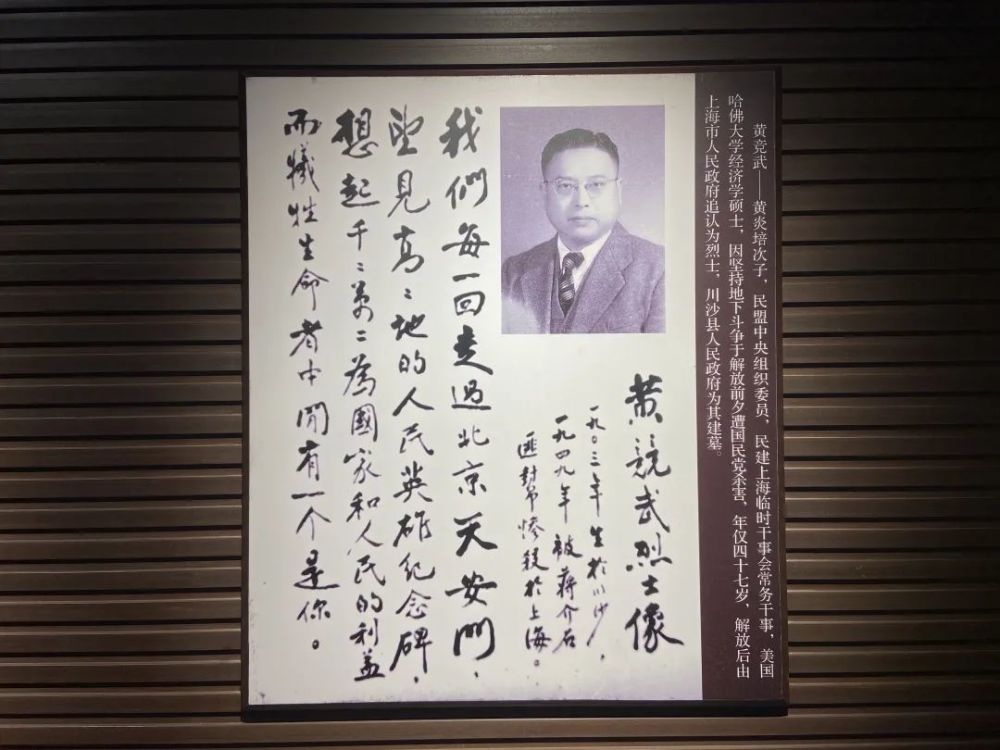 黄竞武——黄炎培次子，民盟中央组织委员，民建上海临时干事会常务干事，美国
哈佛大学经济学硕士，因坚持地下斗争于解放前夕遭国民党杀害，年仅四十七岁，解放后由
上海市人民政府追认为烈士，川沙县人民政府为其建墓。
黄競武烈士像
一九〇三年生於川沙，
一九四九年被蔣介石
匪封帛惨殺於上海。
我們每一回走過北京天安門，
望見高〻地的人民英雄紀念碑，
想起千〻萬〻為國家和人民的利益
而犧牲生命者中間有一个是你。